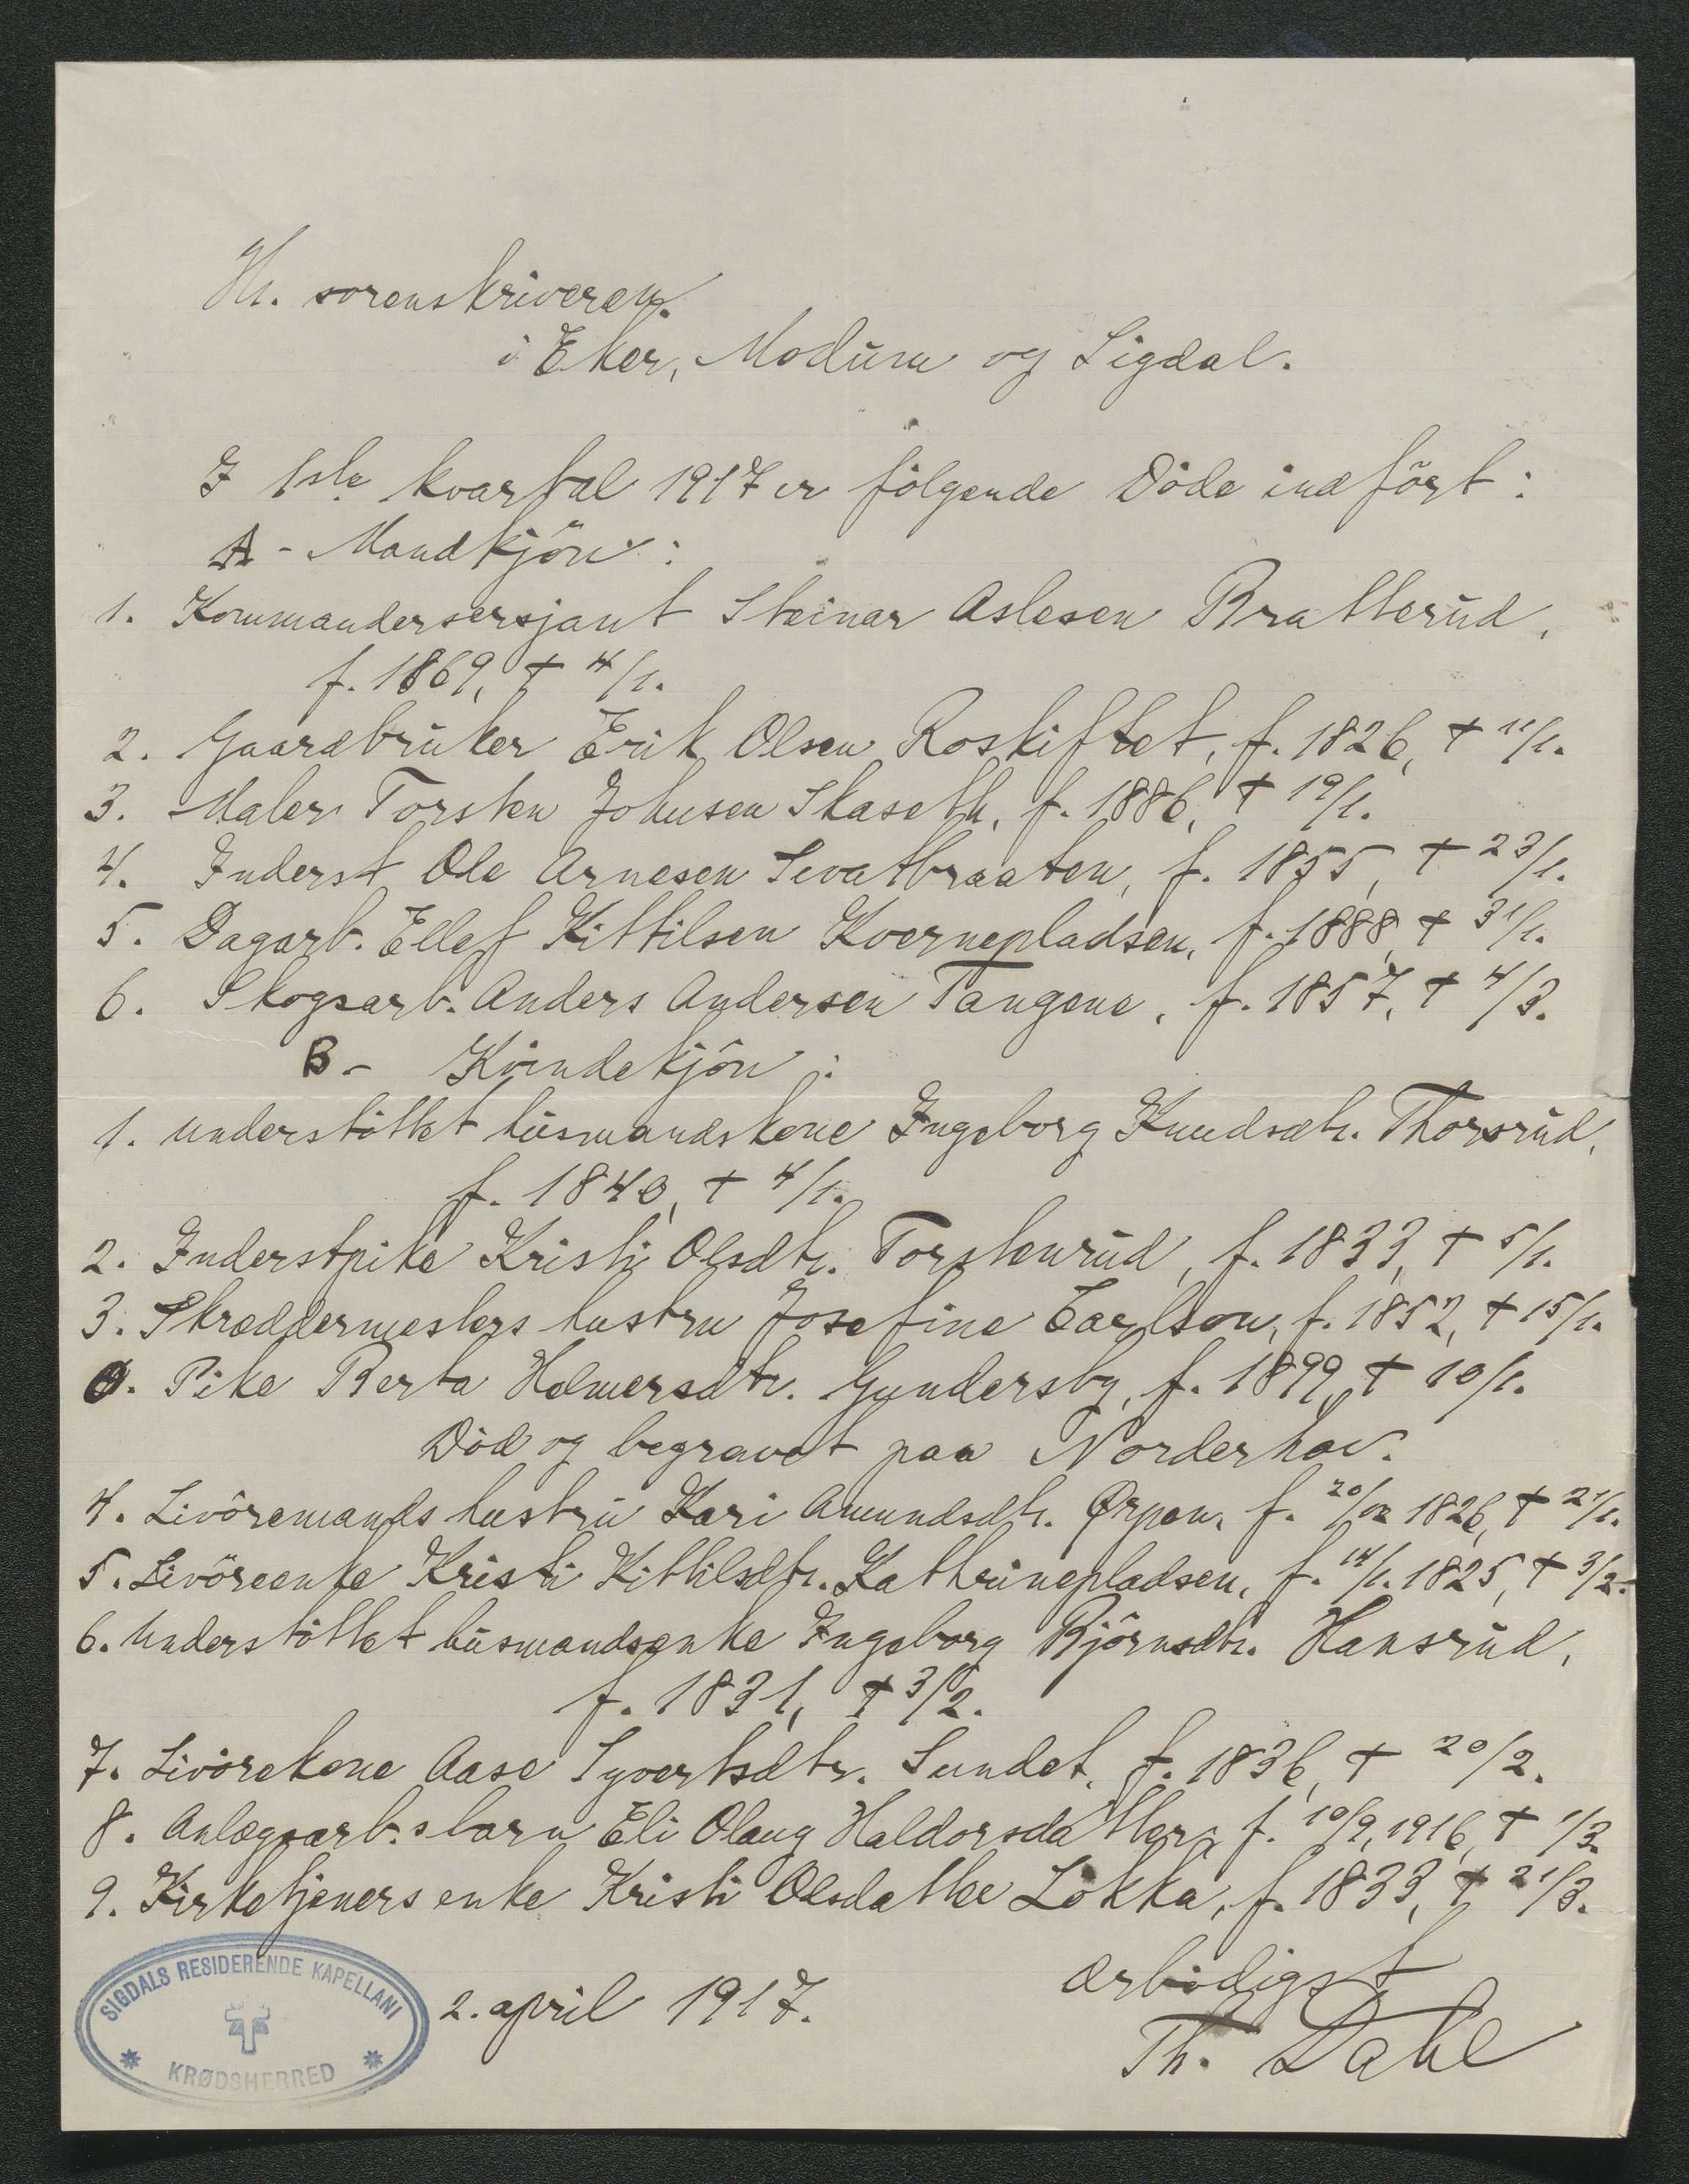 Hr. sorenskriveren
i Eker, Modum og Sigdal.
I 1ste kvartal 1917 er følgende Døde indført:
A - Mandkjön:
1. Kommandersersjant Steinar Aslesen Bratterud,
f. 1869, † 4/1.
2. Gaardbruker Erik Olsen Roskiftet, f. 1826, † 11/1.
3. Maler Torsten Johnsen Skaseth, f. 1886, † 19/1.
4. Inderst Ole Arnesen Sevatbraaten, f. 1855, † 23/1.
5. Dagarb. Ellef Kittilsen Kvernepladsen, f. 1888 † 31/1.
6. Skogsarb. Anders Andersen Tangene, f. 1857, † 4/3.
B. - Kvindekjön:
1. understöttet husmandskone Ingeborg Knudsdtr. Thorsrud,
f. 1840, † 4/1.
2. Inderstpike Kristi Olsdtr. Torstenrud, f. 1833, † 5/1.
3. Skræddermesters hustru Josefine Carlson, f. 1852, † 15/1.
0. Pike Berta Helmersdtr. Gundersby, f. 1899, † 10/1.
Död og begravet paa Norderhov.
4. Livöremands hustru Kari Amundsdtr. Ørpen, f. 20/12 1826, † 21/1.
5. Livöreenke Kristi Kittilsdtr. Kathrinepladsen, f. 14/1. 1825, † 3/2.
6. Understöttet husmandsenke Ingeborg Björnsdtr. Hansrud,
f. 1831, † 3/2.
7. Livörekone Aase Syvertsdtr. Sundet, f. 1836, † 20/2.
8. Anlægsarb.s barn Eli Olaug Haldorsdatter, f. 10/9, 1916, † 1/3.
9. Kirketjeners enke Kristi Olsdatter Lökka, f. 1833, † 21/3.
ærbödigst
2. april 1917.
Th. Dahl
SIGDALS RESIDERENDE KAPELLANI
KRØDSHERRED